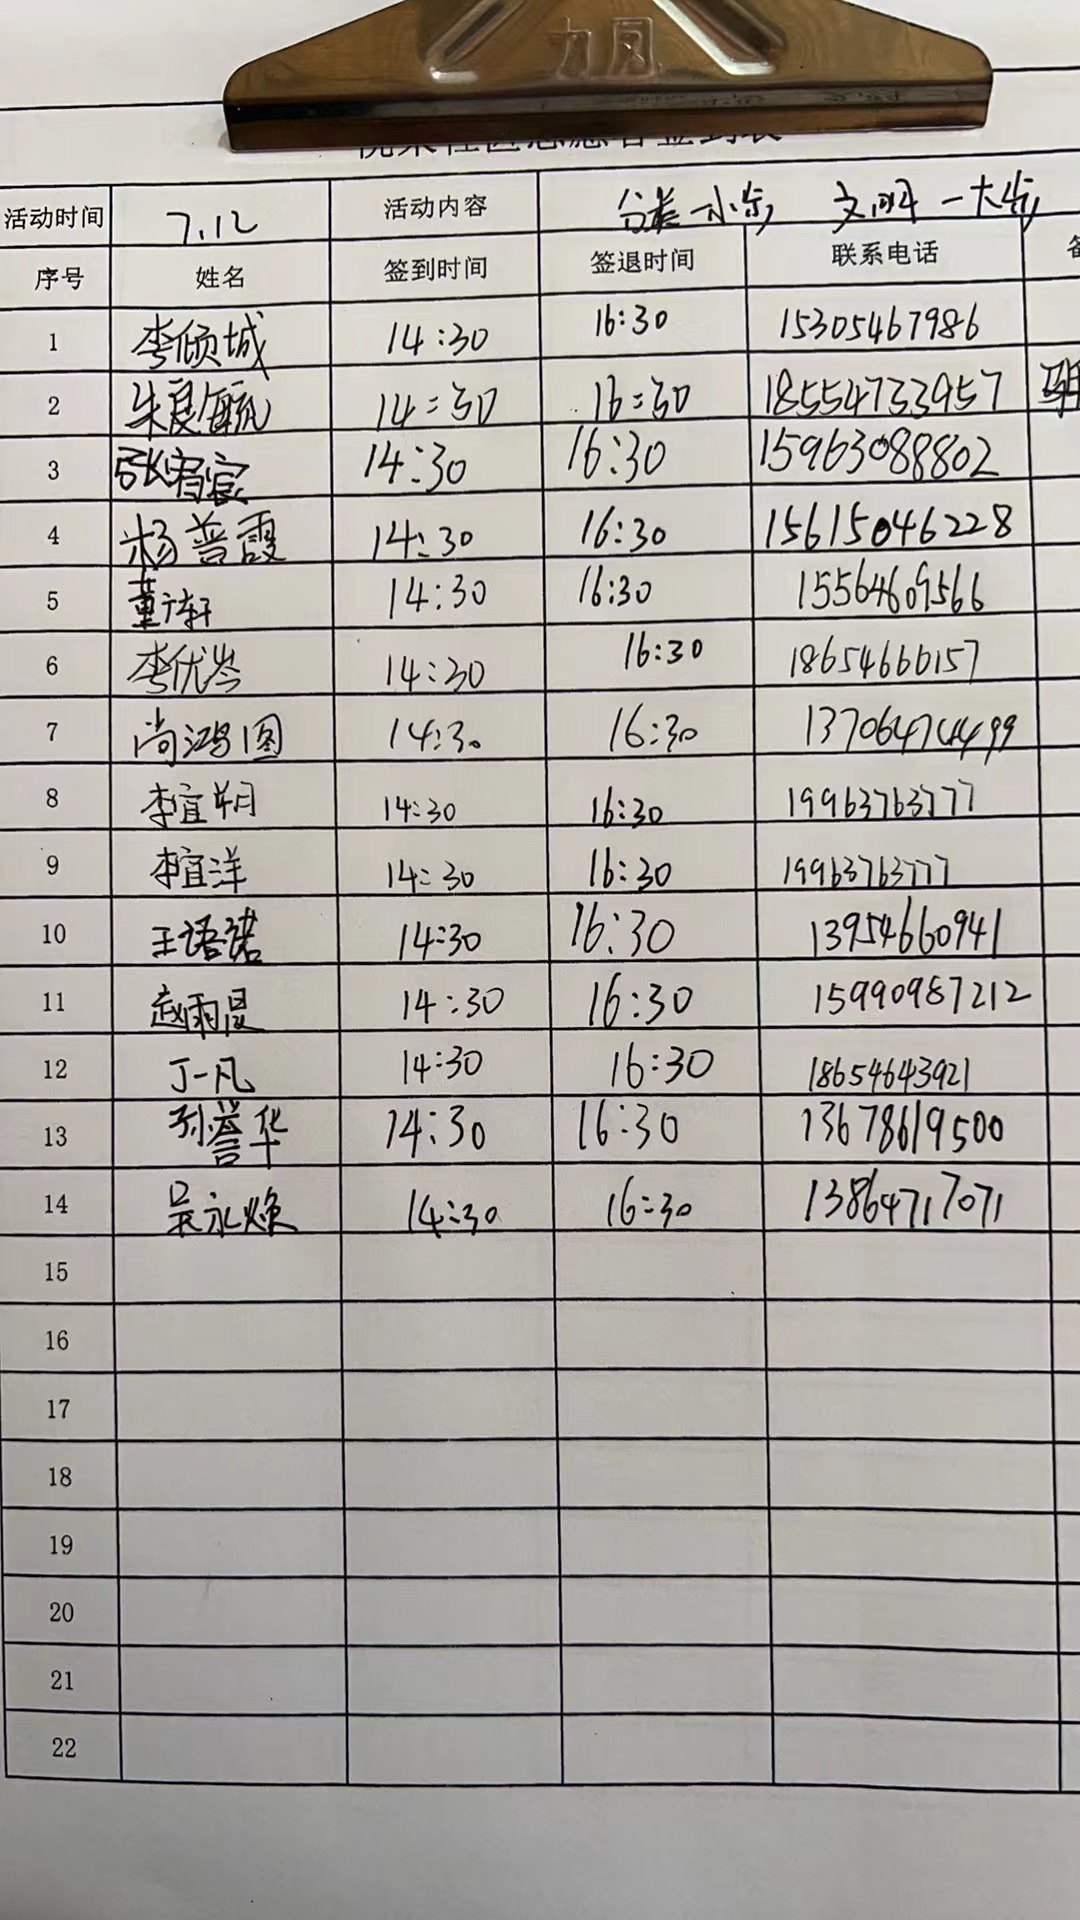 九风
活动时间 7.12 活动内容 分类一小步 文明一大步
序号 姓名 签到时间 签退时间 联系电话
1 李倾城 14:30 16:30 15305467986
2 16:30 18554733957
3 14:30 16:30 15963088802
4 杨普霞 14:30 16:30 15615046228
5 董广轩 14:30 16:30 15564609566
6 李优岑 14:30 16:30 18654666157
7 尚鸿图 14:30 16:30 13706474499
8 李宜朔 14:30 16:30 19963763777
9 李宜洋 14:30 16:30 19963763777
10 王语诺 14:30 16:30 13954660941
11 赵雨晨 14:30 16:30 15990987212
12 丁一凡 14:30 16:30 18654643921
13 孙誉华 14:30 16:30 13678619500
14 吴永焕 14:30 16:30 13864717071
15
16
17
18
19
20
21
22